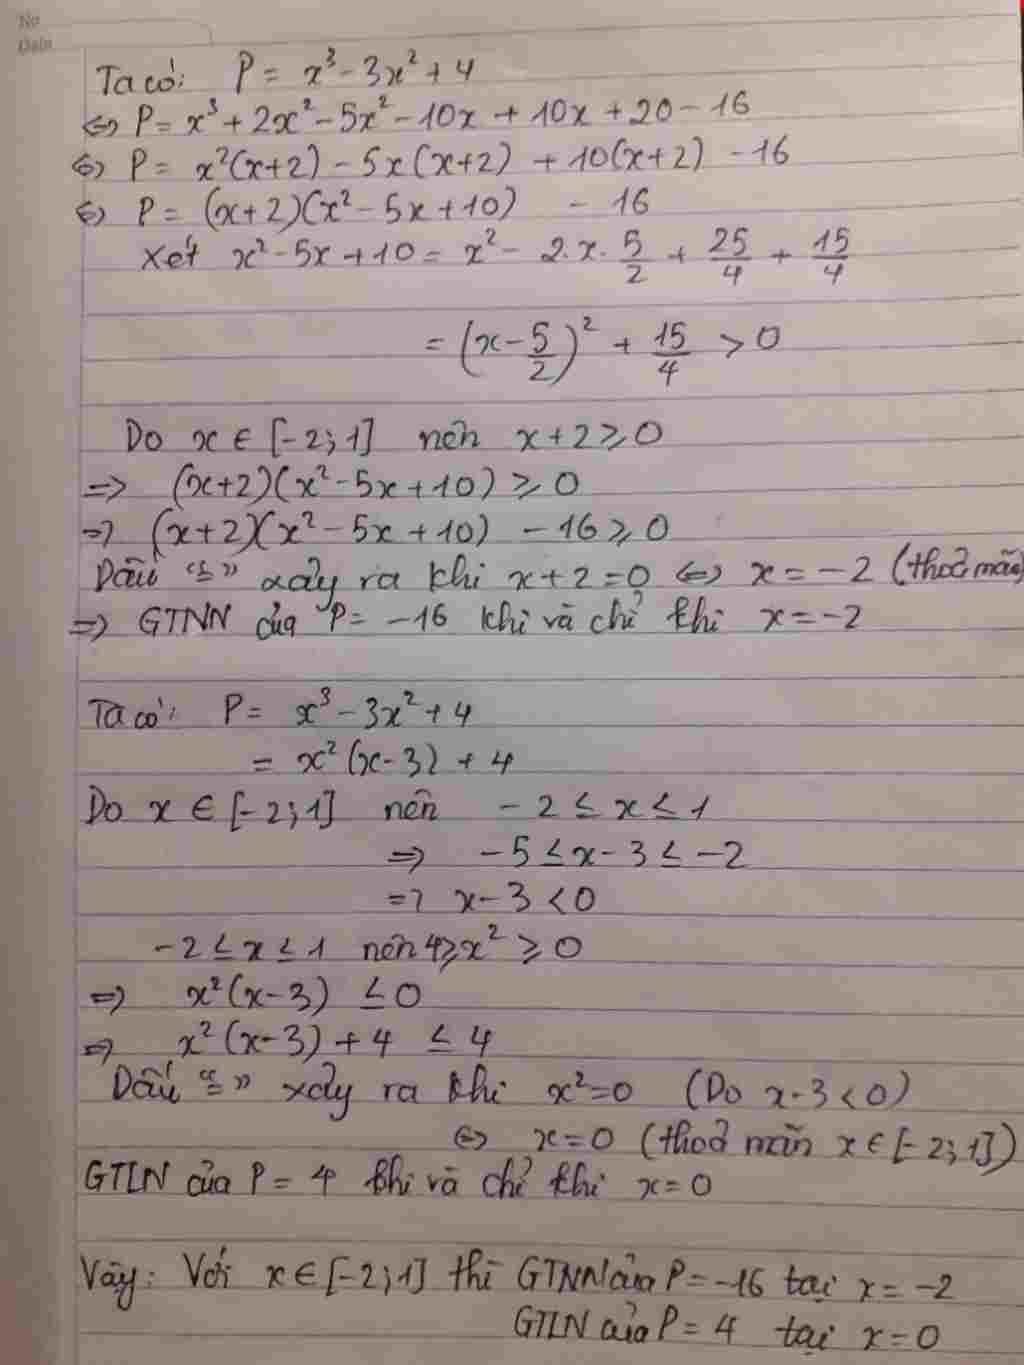 No
Date
Ta có: P = x³ - 3x² + 4
⇔ P = x³ + 2x² - 5x² - 10x + 10x + 20 - 16
⇔ P = x²(x+2) - 5x(x+2) + 10(x+2) - 16
⇔ P = (x+2)(x² - 5x + 10) - 16
Xét x² - 5x + 10 = x² - 2.x.5/2 + 25/4 + 15/4
= (x - 5/2)² + 15/4 > 0
Do x ∈ [-2; 1] nên x + 2 ⩾ 0
⇒ (x+2)(x² - 5x + 10) ⩾ 0
⇒ (x+2)(x² - 5x + 10) - 16 ⩾ 0
Dấu "=" xảy ra khi x + 2 = 0 ⇔ x = -2 (thoả mãn)
⇒ GTNN của P = -16 khi và chỉ khi x = -2
Ta có: P = x³ - 3x² + 4
= x²(x - 3) + 4
Do x ∈ [-2; 1] nên -2 ≤ x ≤ 1
⇒ -5 ≤ x - 3 ≤ -2
⇒ x - 3 < 0
-2 ≤ x ≤ 1 nên 4 ⩾ x² ⩾ 0
⇒ x²(x - 3) ≤ 0
⇒ x²(x - 3) + 4 ≤ 4
Dấu "=" xảy ra khi x² = 0 (Do x - 3 < 0)
⇔ x = 0 (thoả mãn x ∈ [-2; 1])
GTLN của P = 4 khi và chỉ khi x = 0
Vậy: Với x ∈ [-2; 1] thì GTNN của P = -16 tại x = -2
GTLN của P = 4 tại x = 0